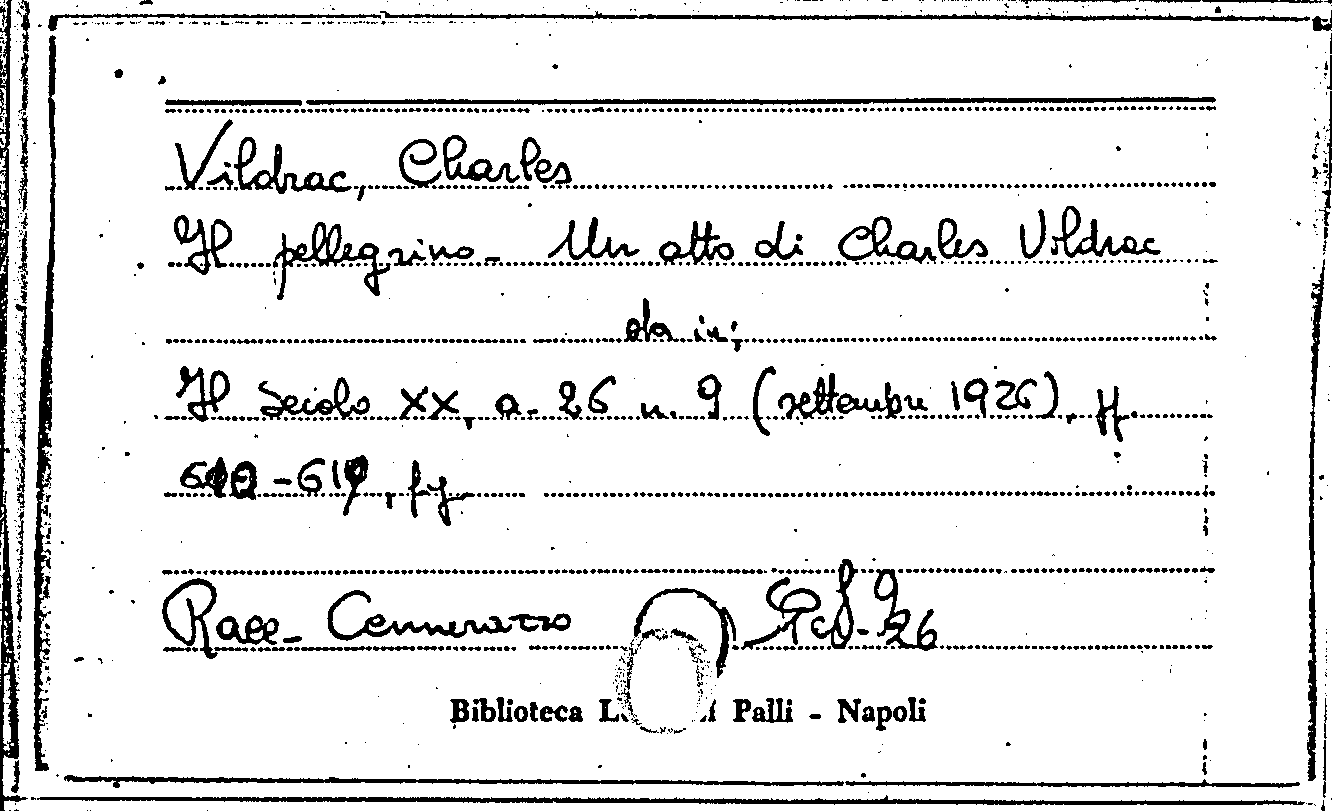 Vildrac, Charles
Il pellegrino - Un atto di Charles Vildrac
da in:
Il secolo XX, a. 26 n. 9 (settembre 1926), pp.
-619, fg.
Racc. Cennerazzo
26
Biblioteca Palli - Napoli